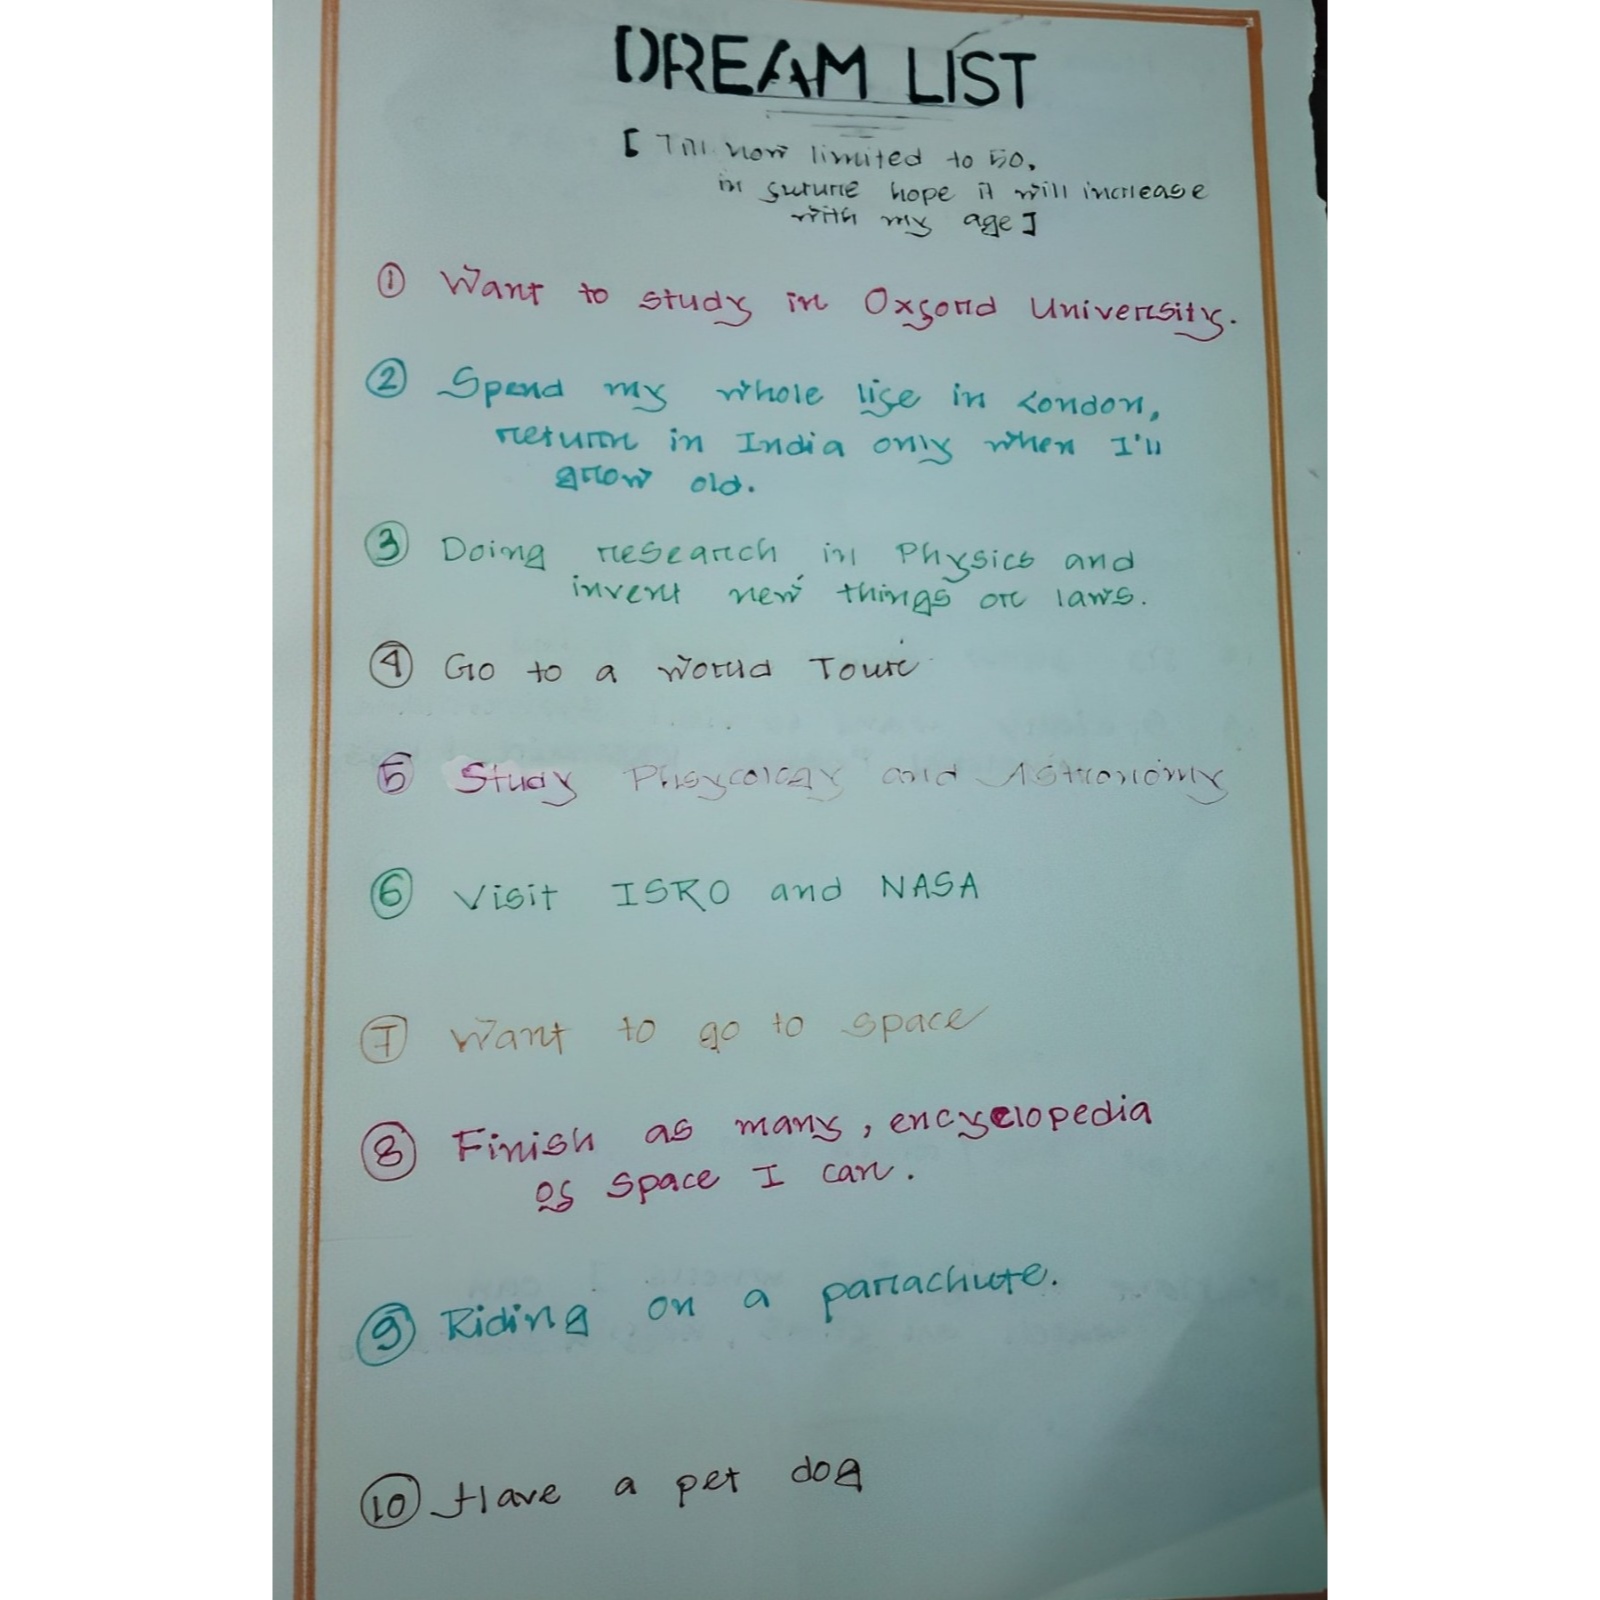 DREAM LIST
[Till now limited to 50,
in future hope it will increase
with my age]
① Want to study in Oxford University.
② Spend my whole life in London,
return in India only when I'll
grow old.
③ Doing research in Physics and
invent new things or laws.
④ Go to a World Tour
⑤ Study Phsycology and Astronomy
⑥ Visit ISRO and NASA
⑦ Want to go to space
⑧ Finish as many, encyclopedia
of space I can.
⑨ Riding on a parachute.
⑩ Have a pet dog